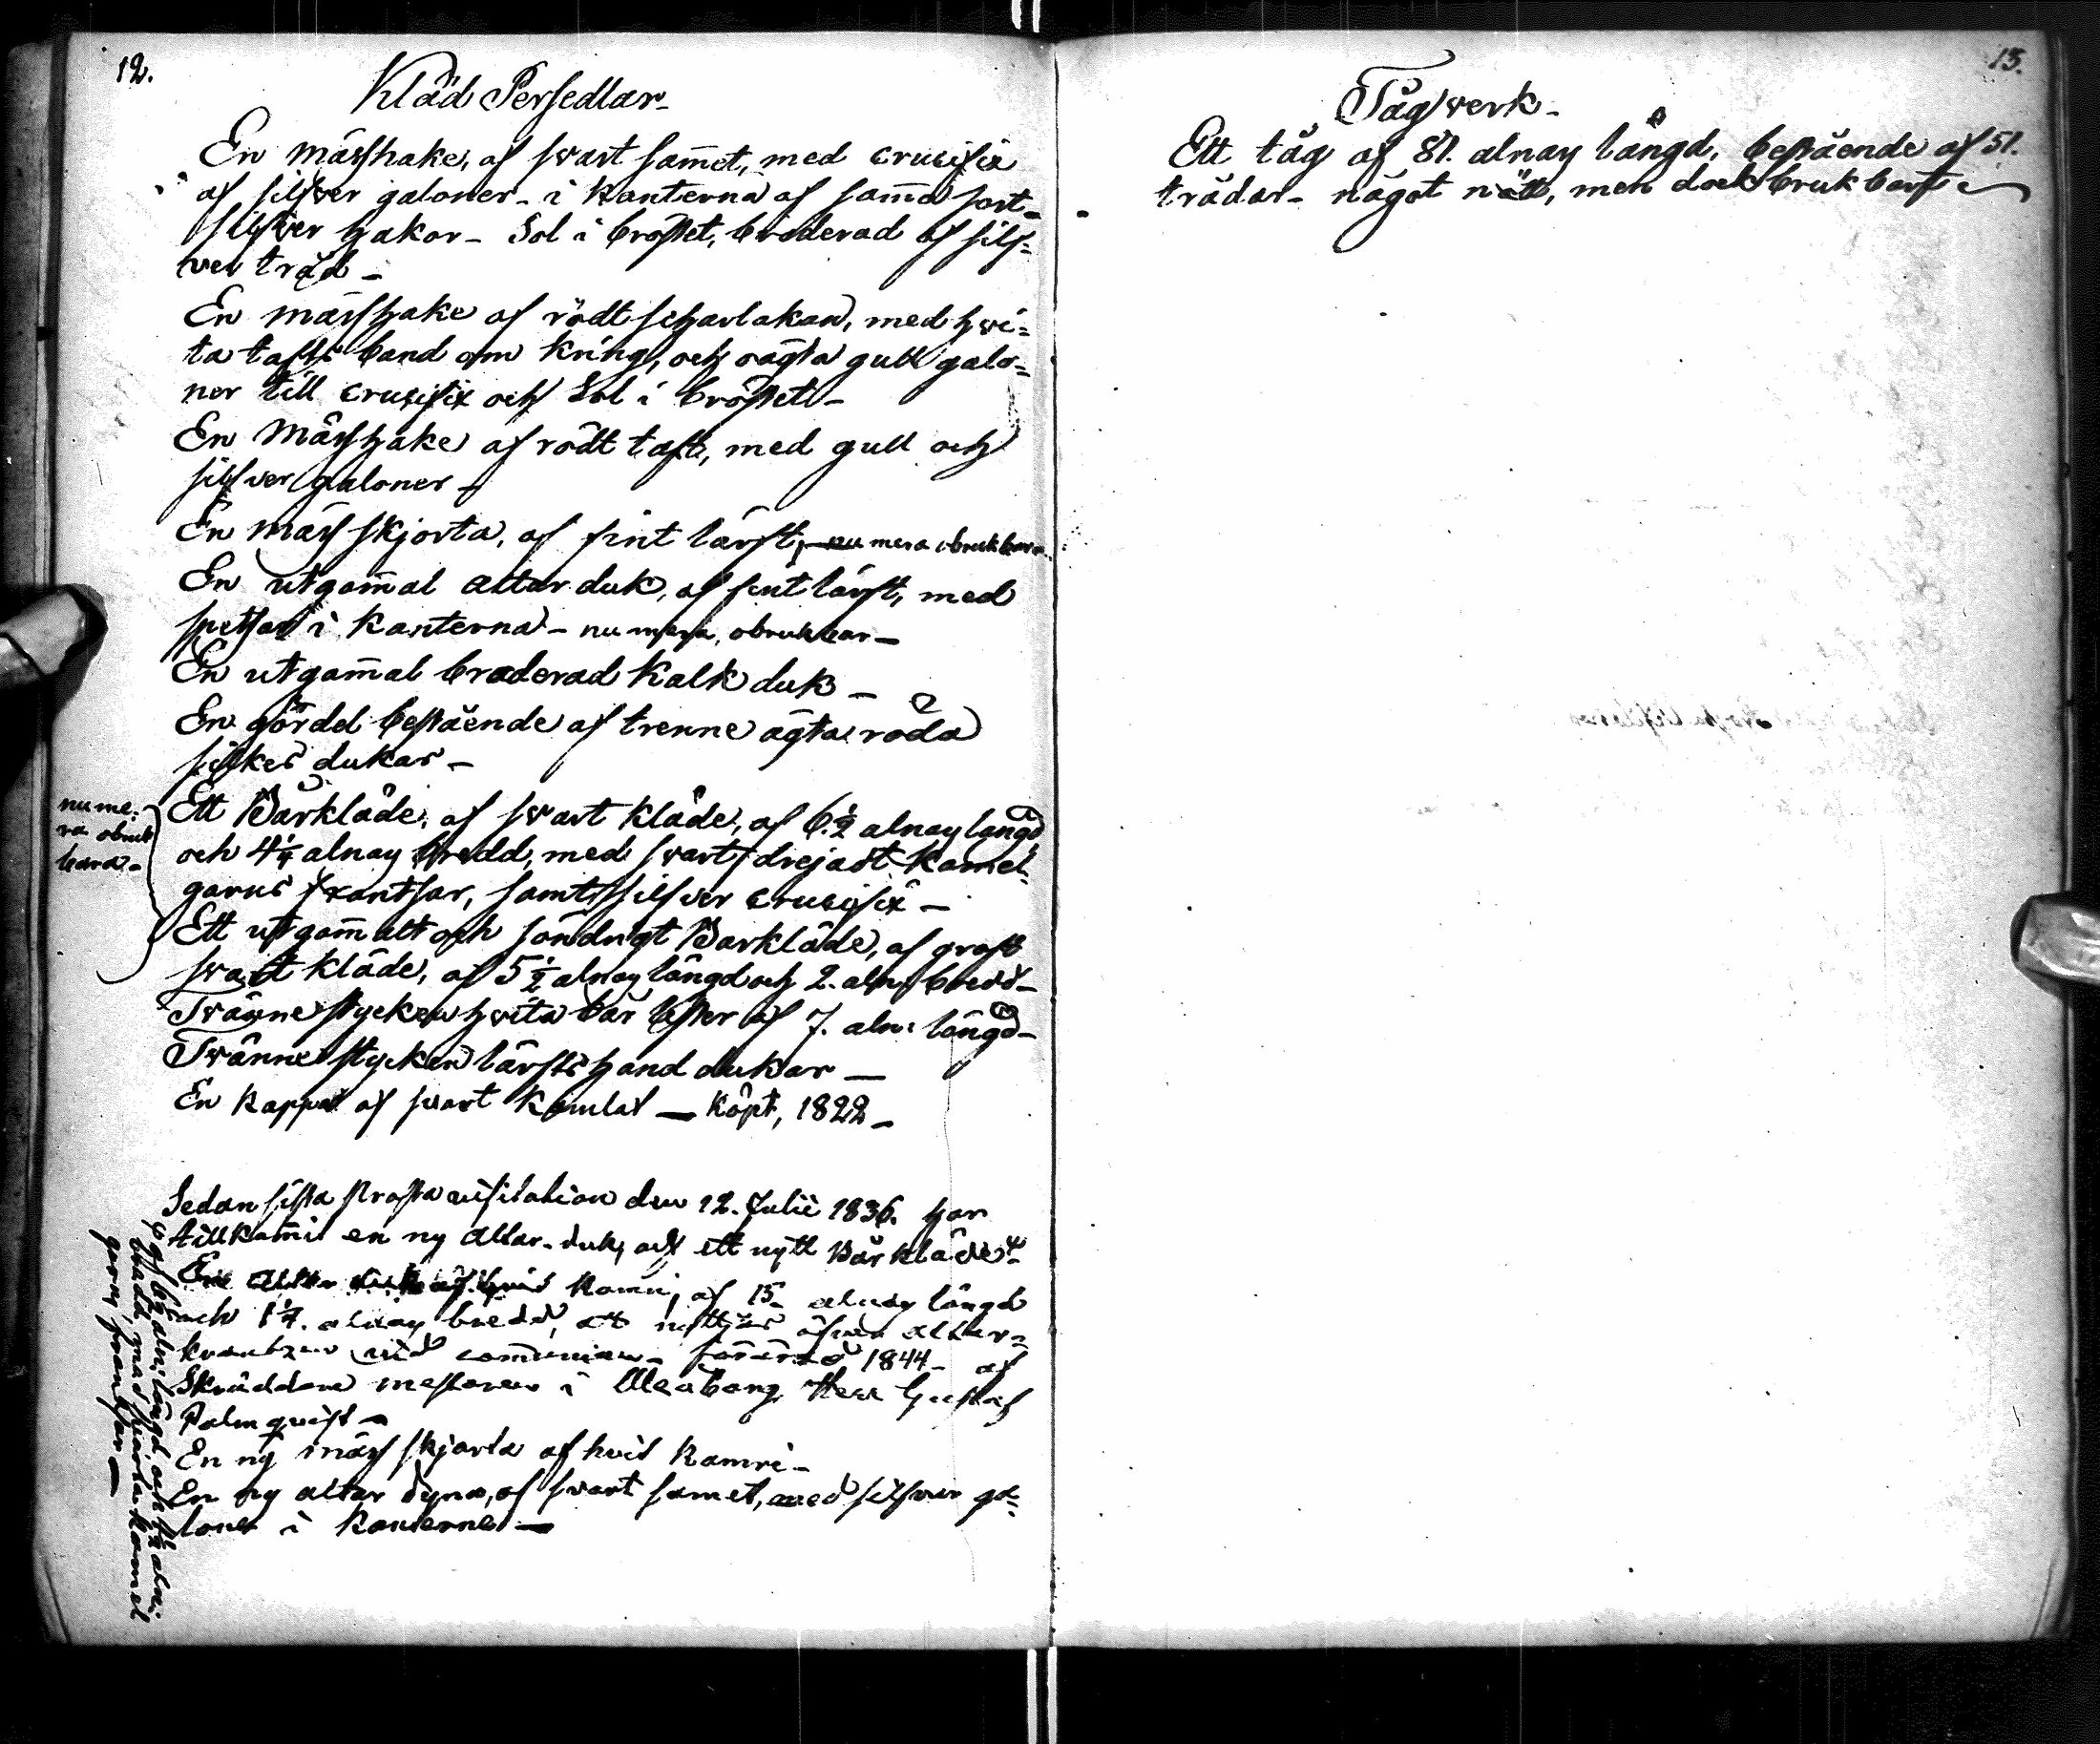 12.
Kläd Persedlar-
En mässhake, af swart sam̄et, med crusifix
af silfver galoner- i kanterna af sam̄a sort-
silfver hakar- Sol i bröstet, broderad af silf=
ver tråd-
En mässhake af rödt scharlakan, med hwi=
ta tafts band om kring, och ägta gull galo=
ner till crusifix och Sol i bröstet-
En Mässhake af rödt taft, med gull och
silfver galoner-
En mäss skjorta, af fint lärft, nu mera obrukbar.
En utgam̄al altar duk, af fint lärft, med
spetsar i kanterna- nu mera, obrukbar-
En utgam̄al broderad Kalk duk-
En gördel bestående af trenne ägta röda
silkes dukar-
nu me=
ra obruk
bara-
Ett Bårkläde, af swart kläde, af 6.½ alnar längd
och 4¼ alnar bredd, med swart drejadt Kamel=
garns frantsar, samt silfver crusifix-
Ett utgam̄alt och söndrigt Bårkläde, af groft
swart kläde, af 5½ alnar längd och 2. aln: bredd-
Twänne stycken hwita bår af 7. aln: längd-
Twänne stycken lärfts hand dukar-
En kappa af swart Kamlat- köpt, 1822-
Sedan sista Prosta visitation den 12. Julii 1836. har
tillkom̄it en ny altar-duk, och ett nytt Bårkläde
En altar duk af hvit Kamri, af 15. alnar längd
och 1¼. alnar bredd, at nyttjas öfver altar=
krantzen vid com̄union- förärad 1844- af
Skräddare mästaren i Herr Gustaf
Palmquist-
En ny mäss skjorta af hvit Kamri-
En ny altar dyna, af swart sam̄et, med silfver ga=
loner i kanterna-
af 6½ aln: längd, och 4½ aln:
bredd, med swarta kamel
garns frantsar-
13.
Tågwerk-
Ett tåg af 81. alnar längd, bestående af 51.
trådar- något nött, men dock brukbart